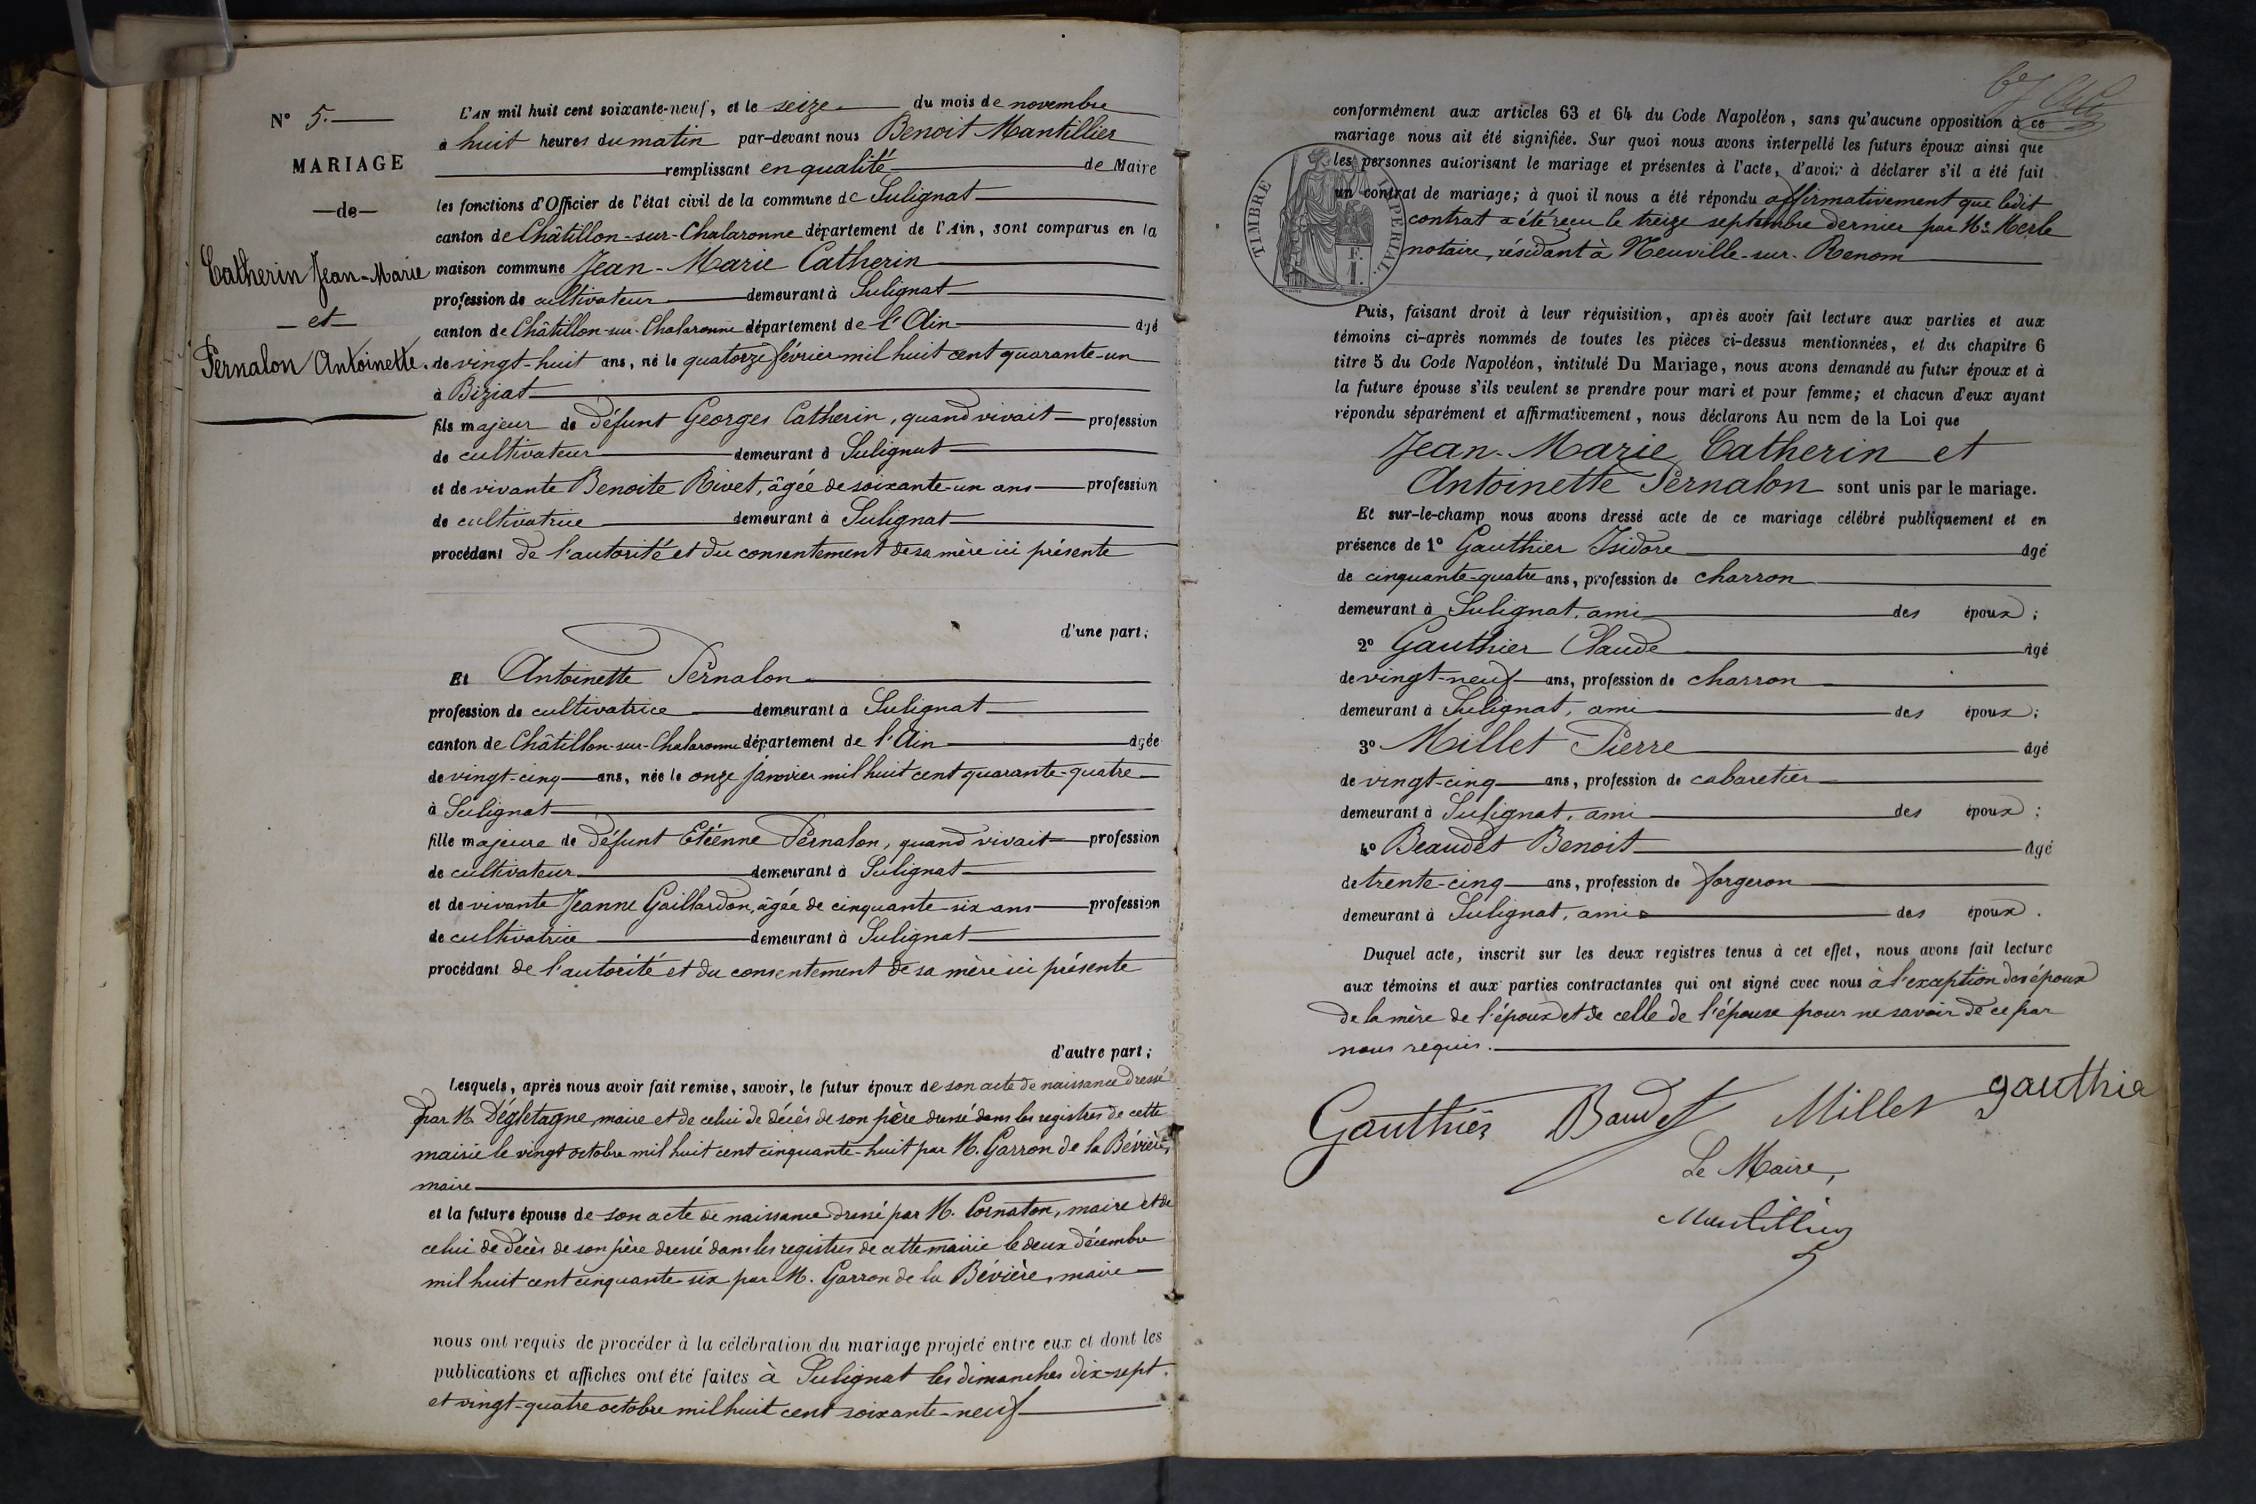 N° 5.
MARIAGE
de
Catherin Jean-Marie
et
Pernalon Antoinette.
L'AN mil huit cent soixante-neuf, et le seize du mois de novembre
à huit heures du matin par-devant nous Benoit Mantillier
remplissant en qualité de Maire
les fonctions d'Officier de l'état civil de la commune de Sulignat
canton de Châtillon-sur-Chalaronne département de l'Ain, sont comparus en la
maison commune Jean-Marie Catherin
profession de cultivateur demeurant à Sulignat
canton de Châtillon-sur-Chalaronne département de l'Ain âgé
de vingt-huit ans, né le quatorze février mil huit cent quarante-un
à Biziat
fils majeur de défunt Georges Catherin, quand vivait profession
de cultivateur demeurant à Sulignat
et de vivante Benoite Rivet, âgée de soixante-un ans profession
de cultivatrice demeurant à Sulignat
procédant de l'autorité et du consentement de sa mère ici présente
d'une part;
Et Antoinette Pernalon
profession de cultivatrice demeurant à Sulignat
canton de Châtillon-sur-Chalaronne département de l'Ain âgée
de vingt-cinq ans, née le onze janvier mil huit cent quarante-quatre
à Sulignat
fille majeure de défunt Etienne Pernalon, quand vivait profession
de cultivateur demeurant à Sulignat
et de vivante Jeanne Gaillardon, âgée de cinquante-six ans profession
de cultivatrice demeurant à Sulignat
procédant de l'autorité et du consentement de sa mère ici présente
d'autre part;
Lesquels, après nous avoir fait remise, savoir, le futur époux de son acte de naissance dressé
par M. Dégletagne, maire et de celui de décès de son père dressé dans les registres de cette
mairie le vingt octobre mil huit cent cinquante-huit par M. Garron de la Bévière,
maire
et la future épouse de son acte de naissance dressé par M. Cornaton, maire et de
celui de décès de son père dressé dans les registres de cette mairie le deux décembre
mil huit cent cinquante-six par M. Garron de la Bévière, maire
nous ont requis de procéder à la célébration du mariage projeté entre eux et dont les
publications et affiches ont été faites à Sulignat les dimanches dix-sept
et vingt-quatre octobre mil huit cent soixante-neuf
conformément aux articles 63 et 64 du Code Napoléon, sans qu'aucune opposition à ce
mariage nous ait été signifiée. Sur quoi nous avons interpellé les futurs époux ainsi que
les personnes autorisant le mariage et présentes à l'acte, d'avoir à déclarer s'il a été fait
un contrat de mariage; à quoi il nous a été répondu affirmativement que ledit
contrat a été reçu le treize septembre dernier par Me Merle
notaire, résidant à Neuville-sur-Renom
TIMBRE IMPERIAL.
F.
1.
Puis, faisant droit à leur réquisition, après avoir fait lecture aux parties et aux
témoins ci-après nommés de toutes les pièces ci-dessus mentionnées, et du chapitre 6
titre 5 du Code Napoléon, intitulé Du Mariage, nous avons demandé au futur époux et à
la future épouse s'ils veulent se prendre pour mari et pour femme; et chacun d'eux ayant
répondu séparément et affirmativement, nous déclarons Au nom de la Loi que
Jean-Marie Catherin et
Antoinette Pernalon sont unis par le mariage.
Et sur-le-champ nous avons dressé acte de ce mariage célébré publiquement et en
présence de 1° Gauthier Isidore âgé
de cinquante-quatre ans, profession de charron
demeurant à Sulignat, ami des époux;
2° Gauthier Claude âgé
de vingt-neuf ans, profession de charron
demeurant à Sulignat, ami des époux;
3° Millet Pierre âgé
de vingt-cinq ans, profession de cabaretier
demeurant à Sulignat, ami des époux;
4° Beaudet Benoit âgé
de trente-cinq ans, profession de forgeron
demeurant à Sulignat, ami des époux.
Duquel acte, inscrit sur les deux registres tenus à cet effet, nous avons fait lecture
aux témoins et aux parties contractantes qui ont signé avec nous à l'exception des époux
de la mère de l'époux et de celle de l'épouse pour ne savoir de ce par
nous requis.
Gauthier Baudet Millet gauthie
Le Maire,
Mantillier